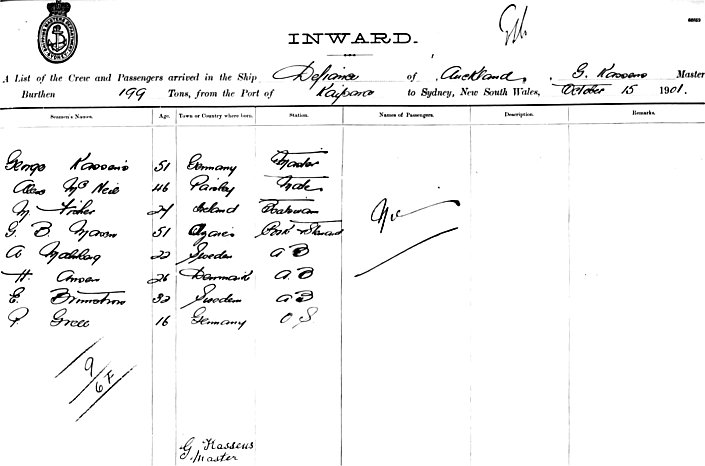 INWARD.
A List of the Crew and Passengers arrived in the Ship Defiance of Auckland, G. Kassens Master
Burthen 199 Tons, from the Port of Kaipara to Sydney, New South Wales, October 15 1901.
Seamen's Names. Age. Town or Country where born. Station. Names of Passengers. Description. Remarks.
George Kassens 51 Germany Master
Alex McNeil 46 Paisley Mate
M Fisher 24 Ireland Boatswain
G. B. 51 Azores Cook & Steward
Nil
A 22 Sweden A B
H. 26 Denmark A B
E. 32 Sweden A B
P 16 Germany O S
9
6F
G Kassens
Master